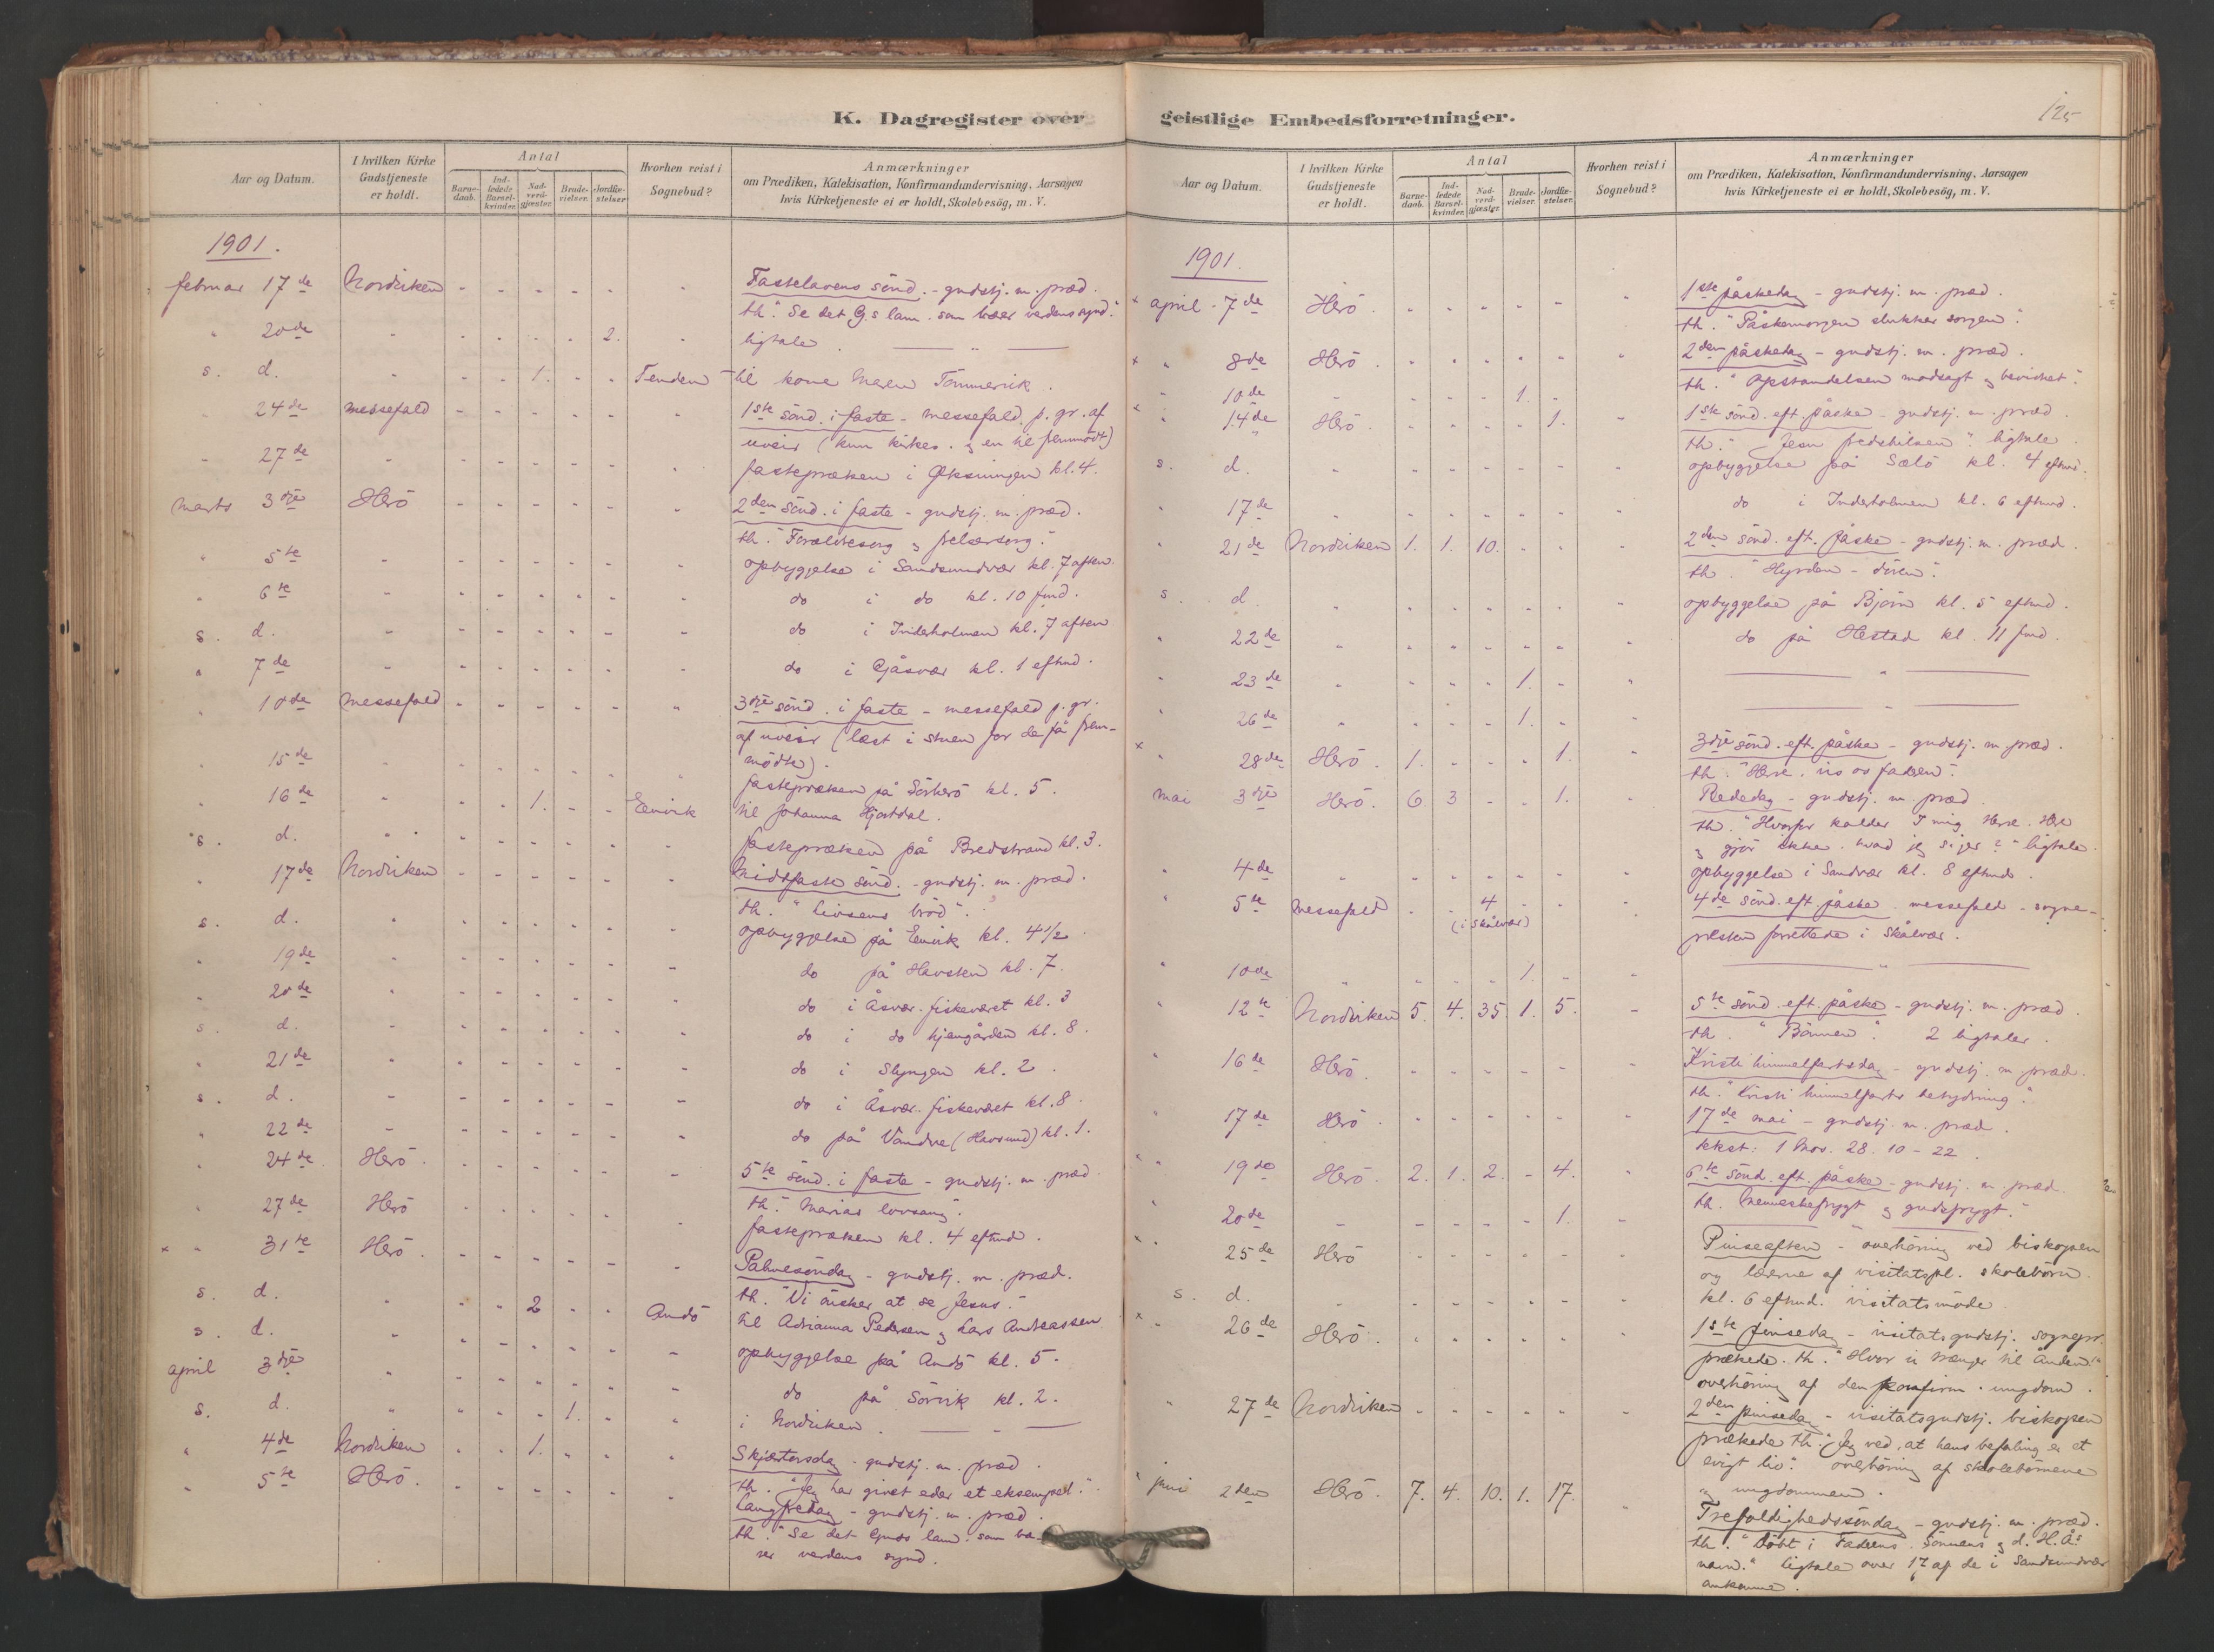 K. Dagregister over
Aar og Datum.
I hvilken Kirke Gudstjeneste er holdt.
Antal
Barne-daab.
Ind-ledede Barsel-kvinder.
Nad-verd-gjæster.
Brude-vielser.
Jordfæ-stelser
Hvorhen reist i Sognebud?
Anmærkninger
om Prædiken, Katekisation, Konfirmandundervisning, Aarsagen
hvis Kirketjeneste ei er holdt, Skolebesög, m. V.
1901.
februar 17de Nordviken - - - - - - Fastelavens sönd. - gudstj. m. præd.
th. "Se det G.s lam. som bærer verdens synd."
" 20de - - - - - 2. - ligtale. — " —
s. d. - - - 1. - - Tenden - til kone Maren Tömmervik.
- 24de messefald - - - - - - 1ste sönd. i faste - messefald p. gr. af
uveir (kun kirkes. og en til fremmödt)
- 27de - - - - - - fastepræken i Øksningen kl. 4.
marts 3dje Herö - - - - - - 2den sönd. i faste - gudstj. m. præd.
th. "Forældresorg og frelsersorg."
" 5te - - - - - - opbyggelse i Sandsundvær kl. 7 aften.
" 6te - - - - - - do i do kl. 10 fmd.
s. d. - - - - - - do i Inderholmen kl. 7 aften
" 7de - - - - - - do i Gjåsvær kl. 1 eftmd.
" 10de messefald - - - - - - 3dje sönd. i faste - messefald p. gr.
af uveir (læst i stuen for de få frem-
mödte).
" 15de - - - - - - fastepræken på Sörherö kl. 5.
" 16de - - - 1. - - Eenvik til Johanna Hjortdal.
s. d. - - - - - - fastepræken på Bredstrand kl. 3.
" 17de Nordviken - - - - - - Midtfaste sönd. - gudstj. m. præd.
th. "Livsens bröd".
s. d. - - - - - - opbyggelse på Eenvik kl. 4½
" 19de - - - - - - do på Havsten kl. 7.
" 20de - - - - - - do i Åsvær. fiskeværet kl. 3
s. d. - - - - - - do i do hjemgården kl. 8.
" 21de - - - - - - do i Slyngen kl. 2.
s. d. - - - - - - do i Åsvær. fiskeværet kl. 8.
" 22de - - - - - - do på Vandve (Havsund) kl. 1.
" 24de Herö. - - - - - - 5te sönd. i faste - gudstj. m. præd
th. "Marias lovsang".
" 27de Herö - - - - - - fastepræken kl. 4 eftmd.
x " 31te Herö. - - - - - - Palmesöndag - gudstj. m. præd.
th. "Vi önsker at se Jesus."
s. d. " - - 2 - - Andö til Adrianna Pedersen og Lars Andreassen
s. d. " - - - - - - opbyggelse på Andö kl. 5.
april 3dje " - - - - - - do på Sörvik kl. 2.
s. d. " - - - 1. - - i Nordviken. — " —
" 4de Nordviken - - 1. - - - Skjærtorsdag - gudstj. m. præd.
th. "Jeg har givet eder et eksempel."
" 5te Herö. - - - - - - Langfredag - gudstj. m. præd.
th. "Se det Guds lam. som bæ-
rer verdens synd.
geistlige Embedsforretninger.
125
Aar og Datum.
I hvilken Kirke Gudstjeneste er holdt.
Antal
Barne-daab.
Ind-ledede Barsel-kvinder.
Nad-verd-gjæster
Brude-vielser.
Jordfæ-stelser.
Hvorhen reist i Sognebud?
Anmærkninger
om Prædiken, Katekisation, Konfirmandundervisning, Aarsagen
hvis Kirketjeneste ei er holdt, Skolebesög, m. V.
1901.
x april - 7de Herö. - - - - - - 1ste påskedag - gudstj. m. præd.
th. "Påskemorgen slukker sorgen".
x " 8de Herö. - - - - - - 2den påskedag - gudstj. m. præd.
th. "Opstandelsen modsagt og bevidnet".
" 10de - - - - 1. -
x " 14de Herö. - - - - 1. - 1ste sönd. eft. påske - gudstj. m. præd.
th. "Jesu fredshilsen". ligtale.
s. d. - - - - - - opbyggelse på Sælö kl. 4 eftmd.
" 17de - - - - - - do i Inderholmen kl. 6 eftmd.
" 21de Nordviken 1. 1. 10. - - - 2den sönd. eft. påske - gudstj. m. præd.
th. "Hyrden - dören".
s. d. - - - - - - opbyggelse på Bjørn kl. 5 eftmd.
" 22de - - - - - - do på Hestad kl. 11 fmd.
" 23de - - - - 1. - - — " —
" 26de - - - - 1. - - — " —
x " 28de Herö. 1. - - - 1. - 3dje sönd. eft. påske - gudstj. m. præd.
th. "Herre. vis os faderen".
mai 3dje Herö. 6 3 - - 1. - Bededag - gudstj. m. præd.
th. "Hvorfor kalder I mig Herre. Herre
og gjör ikke. hvad jeg siger?" ligtale.
" 4de - - - - - - opbyggelse i Sandvær kl. 8 eftmd.
" 5te messefald - - 4 - - - 4de sönd. eft. påske. messefald - sogne-
(i Skålvær) præsten forrettede i Skålvær.
" 10de - - - - 1. - - — " —
" 12te Nordviken 5. 4. 35. 1. 5. - 5te sönd. eft. påske - gudstj. m. præd.
th. "Bönnen". 2 ligtaler.
" 16de Herö. - - - - - - Kristi himmelfartsdag - gudstj. m. præd.
th. "Kristi himmelfarts betydning".
" 17de Herö. - - - - - - 17de mai - gudstj. m. præd.
tekst: 1 Mos. 28. 10 - 22.
" 19de Herö. 2. 1. 2. - 4. - 6te sönd. eft. påske - gudstj. m. præd.
th. Menneskefrygt og gudsfrygt."
" 20de - - - - - 1. - — " —
" 25de Herö - - - - - - Pinseaften - overhöring ved biskopen
og lærerne af visitatspl. skolebörn.
s. d. - - - - - - kl. 6 eftmd. visitatsmöde
x " 26de Herö. - - - - - - 1ste pinsedag - visitatsgudstj. sognepr.
prækede. th. "Hvor vi trænger til Ånden!"
overhöring af den konfirm. ungdom.
" 27de Nordviken - - - - - - 2den pinsedag - visitatsgudstj. biskopen
prækede th. "Jeg ved, at hans befaling er et
evigt liv." overhöring af skolebörnene
og ungdommen.
" juni 2den Herö. 7. 4. 10. 1. 17. - Trefoldighedssöndag - gudstj. m. præd.
th. "Döbt i Faderens. Sönnens og d. H. Å.s
navn." ligtale over 12 af de i Sandsundvær
omkomne.